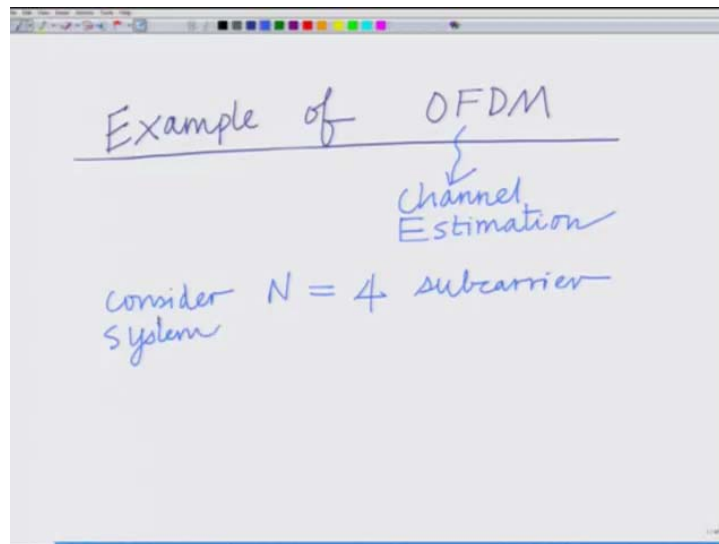 Example of OFDM
Channel
Estimation
consider N = 4 subcarrier
system